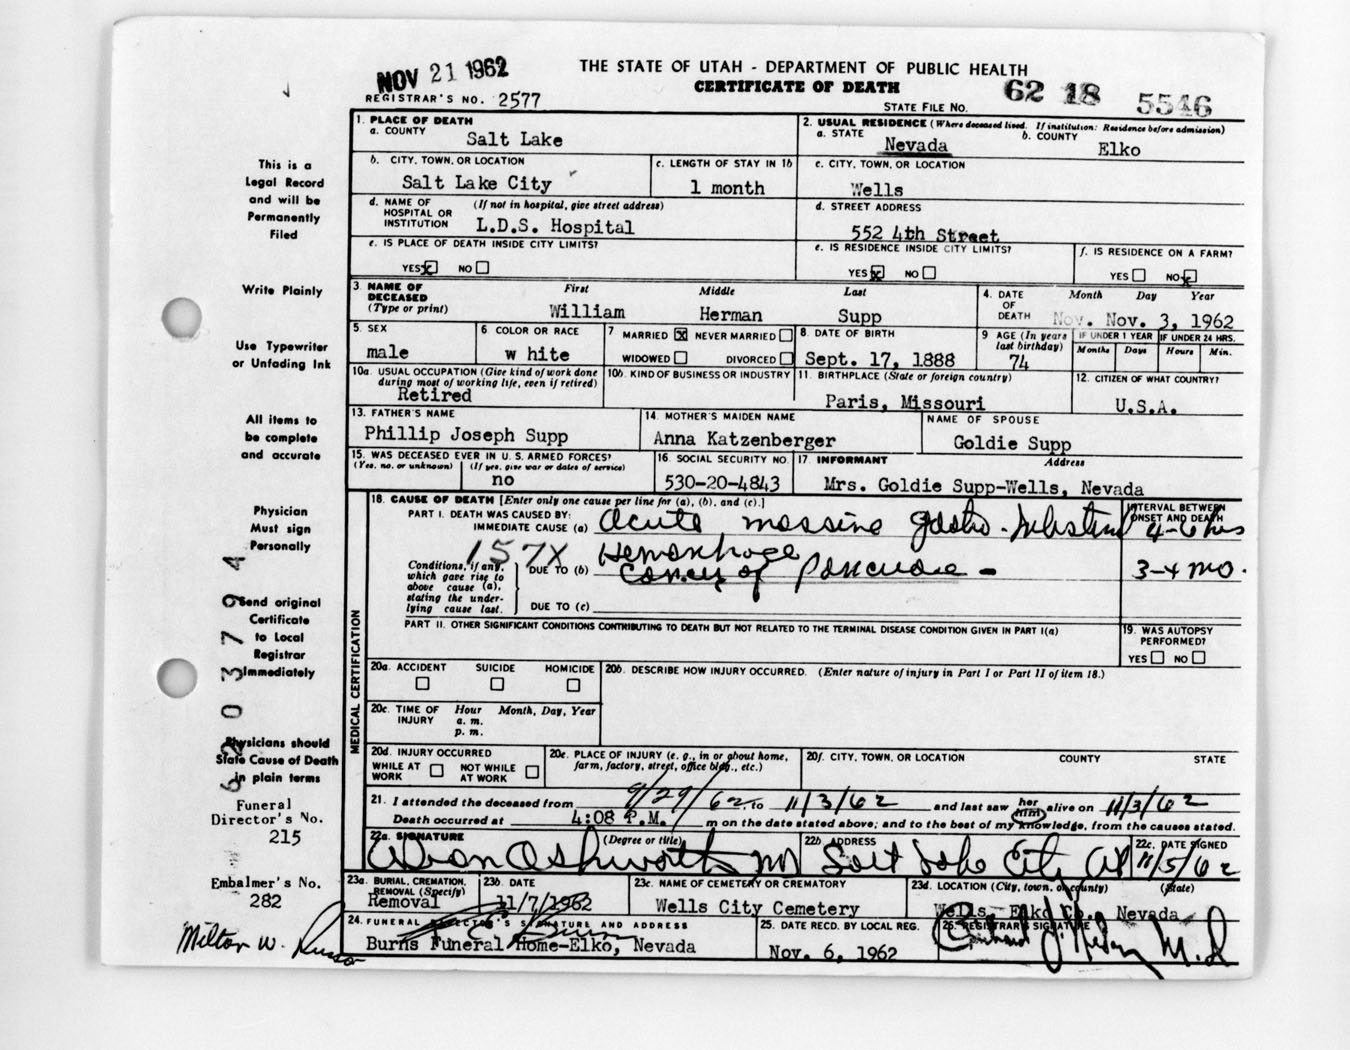 NOV 21 1962
THE STATE OF UTAH - DEPARTMENT OF PUBLIC HEALTH
CERTIFICATE OF DEATH
REGISTRAR'S NO. 2577
STATE FILE NO. 62 18 5546
This is a
Legal Record
and will be
Permanently
Filed
Write Plainly
Use Typewriter
or Unfading Ink
All items to
be complete
and accurate
Physician
Must sign
Personally
Send original
Certificate
to Local
Registrar
Immediately
Physicians should
State Cause of Death
in plain terms
Funeral
Director's No.
215
Embalmer's No.
282
Milton W. Russo
1. PLACE OF DEATH
a. COUNTY
Salt Lake
2. USUAL RESIDENCE (Where deceased lived. If institution: Residence before admission)
a. STATE Nevada
b. COUNTY Elko
b. CITY, TOWN, OR LOCATION
Salt Lake City
c. LENGTH OF STAY IN 1b
1 month
c. CITY, TOWN, OR LOCATION
Wells
d. NAME OF HOSPITAL OR INSTITUTION (If not in hospital, give street address)
L.D.S. Hospital
d. STREET ADDRESS
552 4th Street
e. IS PLACE OF DEATH INSIDE CITY LIMITS?
YES x NO
e. IS RESIDENCE INSIDE CITY LIMITS?
YES x NO
f. IS RESIDENCE ON A FARM?
YES NO x
3. NAME OF DECEASED (Type or print)
First Middle Last
William Herman Supp
4. DATE OF DEATH Month Day Year
Nov. Nov. 3, 1962
5. SEX
male
6 COLOR OR RACE
w hite
7 MARRIED X NEVER MARRIED
WIDOWED DIVORCED
8. DATE OF BIRTH
Sept. 17, 1888
9 AGE (In years last birthday)
74
IF UNDER 1 YEAR
Months Days
IF UNDER 24 HRS.
Hours Min.
10a. USUAL OCCUPATION (Give kind of work done during most of working life, even if retired)
Retired
10b. KIND OF BUSINESS OR INDUSTRY
11. BIRTHPLACE (State or foreign country)
Paris, Missouri
12. CITIZEN OF WHAT COUNTRY?
U.S.A.
13. FATHER'S NAME
Phillip Joseph Supp
14. MOTHER'S MAIDEN NAME
Anna Katzenberger
NAME OF SPOUSE
Goldie Supp
15. WAS DECEASED EVER IN U. S. ARMED FORCES?
(Yes, no, or unknown) (If yes, give war or dates of service)
no
16. SOCIAL SECURITY NO.
530-20-4843
17. INFORMANT Address
Mrs. Goldie Supp-Wells, Nevada
MEDICAL CERTIFICATION
18. CAUSE OF DEATH [Enter only one cause per line for (a), (b), and (c).]
PART I. DEATH WAS CAUSED BY:
IMMEDIATE CAUSE (a) Acute massive gastro-intestinal
Hemorrhage
INTERVAL BETWEEN ONSET AND DEATH
4-6 hrs
157X
Conditions, if any, which gave rise to above cause (a), stating the underlying cause last.
DUE TO (b) Cancer of Pancreas -
3-4 mo.
DUE TO (c)
PART II. OTHER SIGNIFICANT CONDITIONS CONTRIBUTING TO DEATH BUT NOT RELATED TO THE TERMINAL DISEASE CONDITION GIVEN IN PART I(a)
19. WAS AUTOPSY PERFORMED?
YES NO
20a. ACCIDENT SUICIDE HOMICIDE
20b. DESCRIBE HOW INJURY OCCURRED. (Enter nature of injury in Part I or Part II of item 18.)
20c. TIME OF INJURY Hour Month, Day, Year
a. m.
p. m.
20d. INJURY OCCURRED
WHILE AT WORK NOT WHILE AT WORK
20e. PLACE OF INJURY (e. g., in or about home, farm, factory, street, office bldg., etc.)
20f. CITY, TOWN, OR LOCATION COUNTY STATE
21. I attended the deceased from 9/29/62, to 11/3/62 and last saw her him alive on 11/3/62
Death occurred at 4:08 P.M. m on the date stated above; and to the best of my knowledge, from the causes stated.
22a. SIGNATURE (Degree or title)
Ashworth MD
22b. ADDRESS
Salt Lake City
22c. DATE SIGNED
11/5/62
23a. BURIAL, CREMATION, REMOVAL (Specify)
Removal
23b. DATE
11/7/1962
23c. NAME OF CEMETERY OR CREMATORY
Wells City Cemetery
23d. LOCATION (City, town, or county) (State)
Wells, Elko Co. Nevada
24. FUNERAL DIRECTOR'S SIGNATURE AND ADDRESS
Burns Funeral Home-Elko, Nevada
25. DATE RECD. BY LOCAL REG.
Nov. 6, 1962
26. REGISTRAR'S SIGNATURE
M.D
6203794